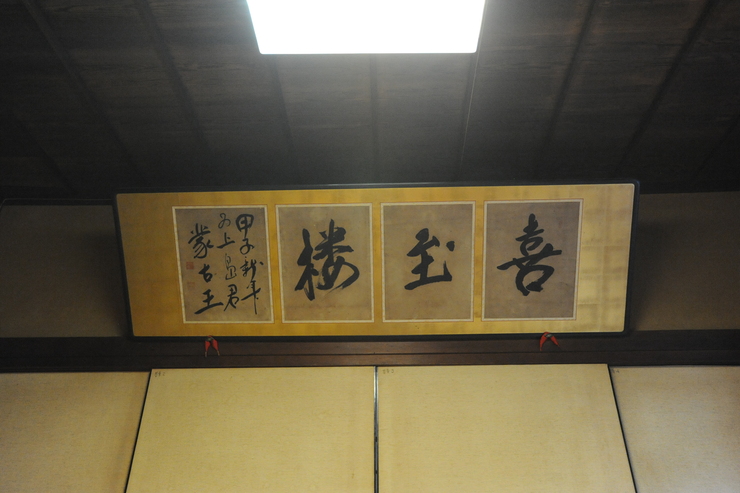 喜至楼
甲子新年
为上島君
蒙古王